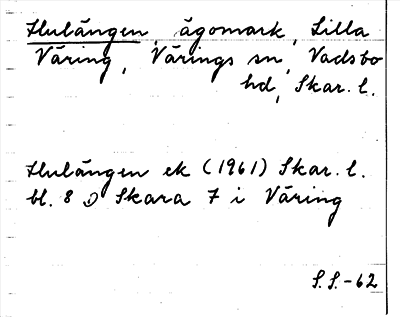 Hulängen, ägomark, Lilla
Väring, Värings sn, Vadsbo
hd, Skar. l.
Hulängen ek (1961) Skar. l.
bl. 8 Skara 7 i Väring
S.S.-62